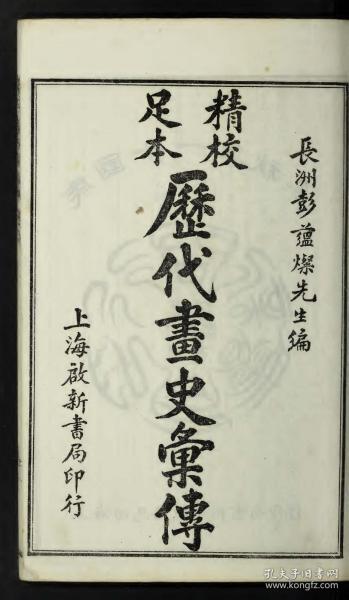 長洲彭蘊燦先生編
精校
足本
歷代畫史彙傳
上海啟新書局印行
孔夫子旧书网